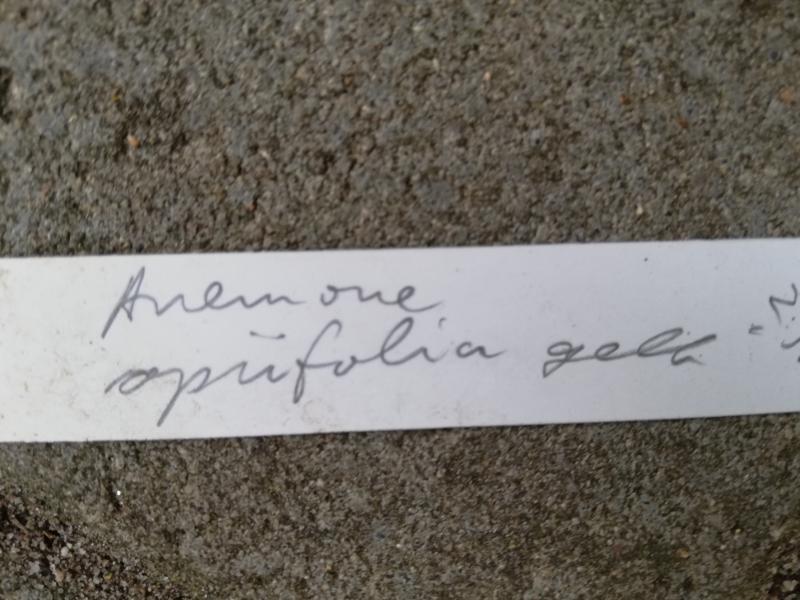 Anemone
apiifolia gelb